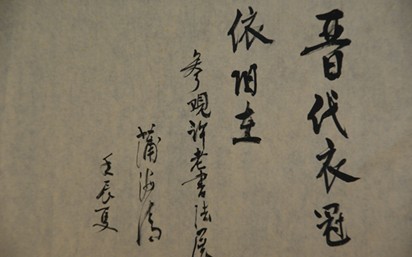 晋代衣冠
依旧在
参观许老书法展
蒲沙
壬辰夏